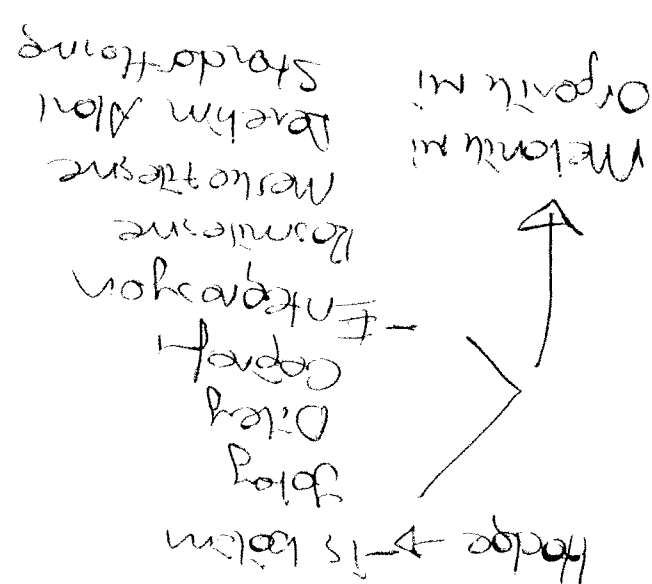 Hodge → -İş bölüm
Yatay
Dikey
Coğrafi
-Entegrasyon
Resmileşme
Merkezileşme
Denetim Alanı
Standartlaşma
Mekanik mi
Organik mi